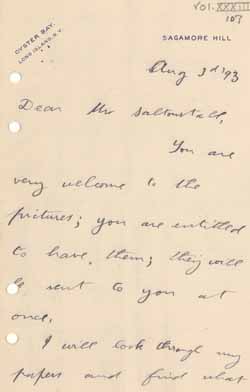 VOL. XXXIII
107
OYSTER BAY,
LONG ISLAND, N.Y.
SAGAMORE HILL
Aug 3d '93
Dear Mr Saltonstall,
You are
very welcome to the
pictures; you are entitled
to have them; they will
be sent to you at
once.
I will look through my
papers and find what